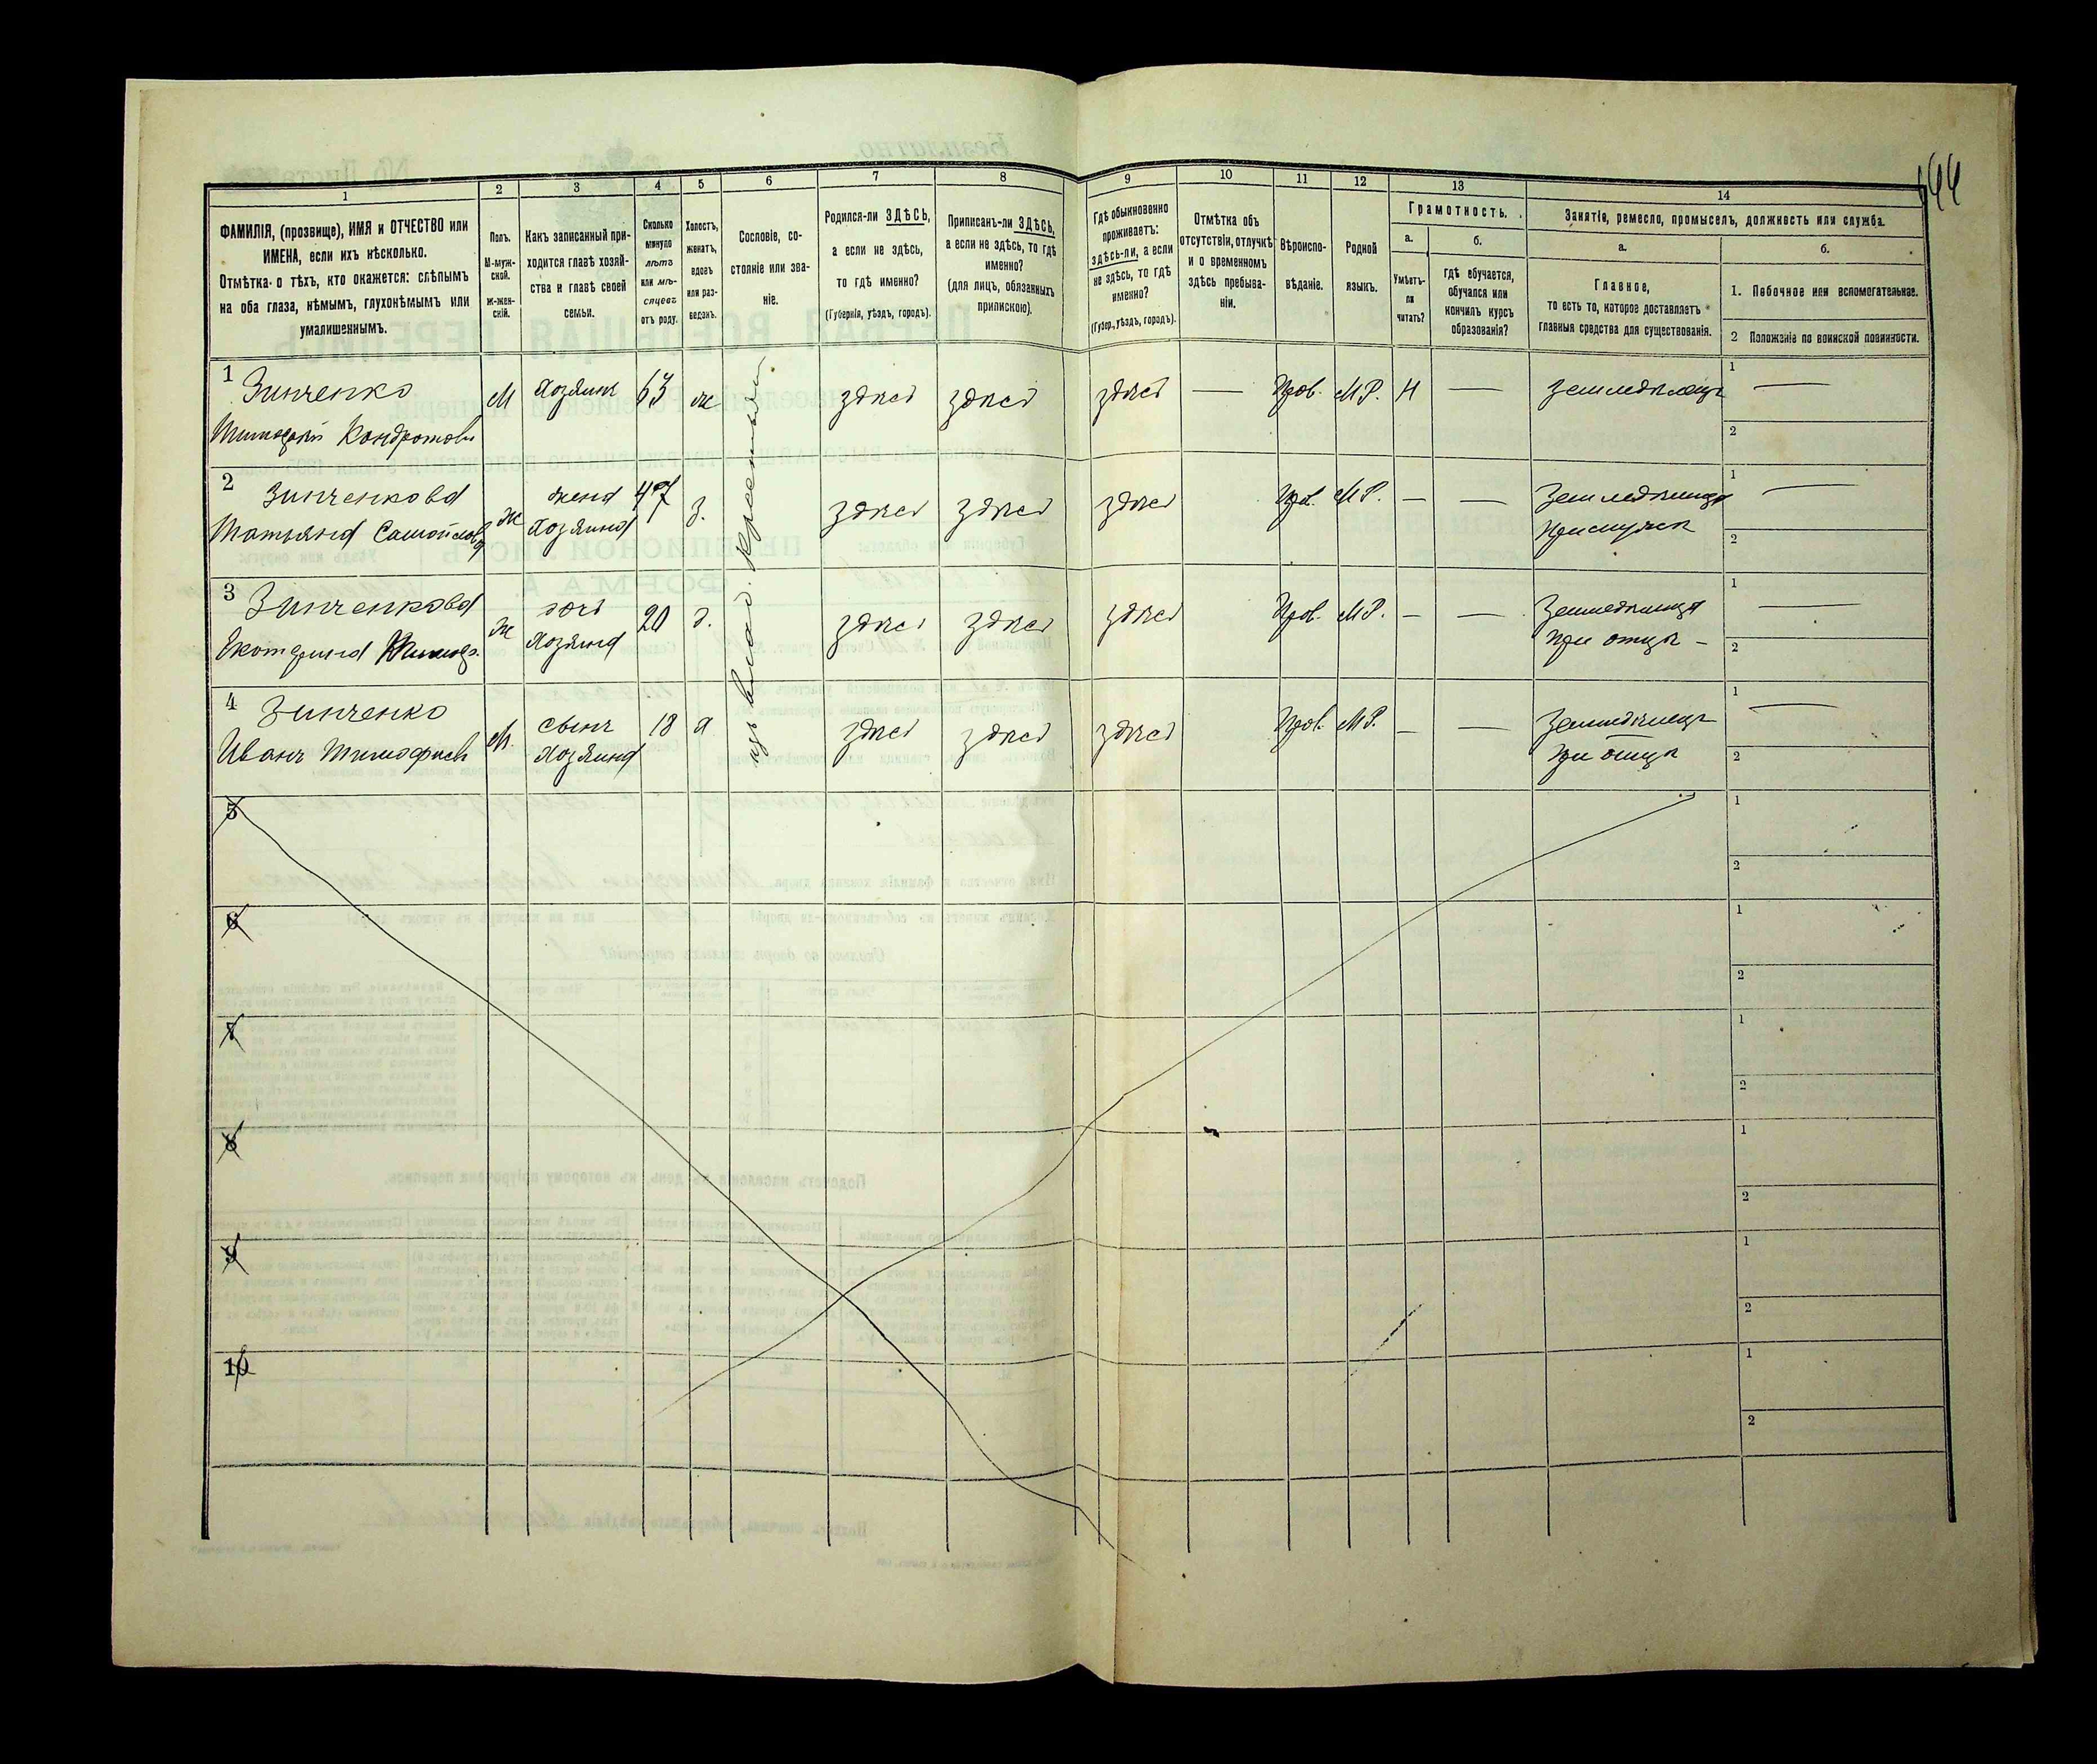 144
1 2 3 4 5 6 7 8 9 10 11 12 13 14
ФАМИЛІЯ, (прозвище), ИМЯ и ОТЧЕСТВО или
ИМЕНА, если ихъ нѣсколько.
Отмѣтка о тѣхъ, кто окажется: слѣпымъ
на оба глаза, нѣмымъ, глухонѣмымъ или
умалишеннымъ.
Полъ.
М-муж-
ской.
Ж-жен-
скій.
Какъ записанный при-
ходится главѣ хозяй-
ства и главѣ своей
семьи.
Сколько
минуло
лѣтъ
или мѣ-
сяцевъ
отъ роду.
Холостъ,
женатъ,
вдовъ
или раз-
веденъ.
Сословіе, со-
стояніе или зва-
ніе.
Родился-ли ЗДѢСЬ,
а если не здѣсь,
то гдѣ именно?
(Губернія, уѣздъ, городъ).
Приписанъ-ли ЗДѢСЬ,
а если не здѣсь, то гдѣ
именно?
(для лицъ, обязанныхъ
припискою).
Гдѣ обыкновенно
проживаетъ:
здѣсь-ли, а если
не здѣсь, то гдѣ
именно?
(Губер., уѣздъ, городъ).
Отмѣтка объ
отсутствіи, отлучкѣ
и о временномъ
здѣсь пребыва-
ніи.
Вѣроиспо-
вѣданіе.
Родной
языкъ.
Грамотность.
а.
Умѣетъ-
ли
читать?
б.
гдѣ обучается,
обучался или
кончилъ курсъ
образованія?
Занятіе, ремесло, промыселъ, должность или служба.
а.
Главное,
то есть то, которое доставляетъ
главныя средства для существованія.
б.
1. Побочное или вспомогательное.
2 Положеніе по воинской повинности.
изъ влад. крестьянъ
1 Зинченко М Хозяинъ 63 ж здѣсь здѣсь здѣсь — Прав. М.Р. Н — земледѣлецъ 1 —
Тимофѣй Кондратовъ 2
2 Зинченкова ж жена 47 з. здѣсь здѣсь здѣсь Прав. М.Р. — — Земледѣлица 1 —
Татьяна Самойлова Хозяина При мужѣ 2
3 Зинченкова ж дочь 20 д. здѣсь здѣсь здѣсь Прав. М.Р. — — Земледѣлица 1 —
Екатерина Тимоф. Хозяина при отцѣ - 2
4 Зинченко М. сынъ 18 х здѣсь здѣсь здѣсь Прав. М.Р. — — Земледѣлецъ 1 —
Иванъ Тимофѣевъ Хозяина при отцѣ 2
5 1
2
6 1
2
7 1
2
8 1
2
9 1
2
10 1
2